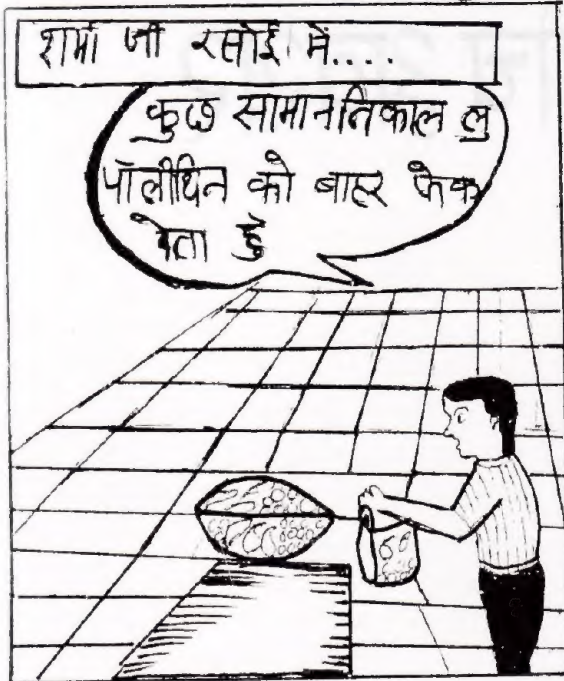 शर्मा जी रसोई में....
कुछ सामान निकाल लु
पॉलीथिन को बाहर फेक
देता हुँ